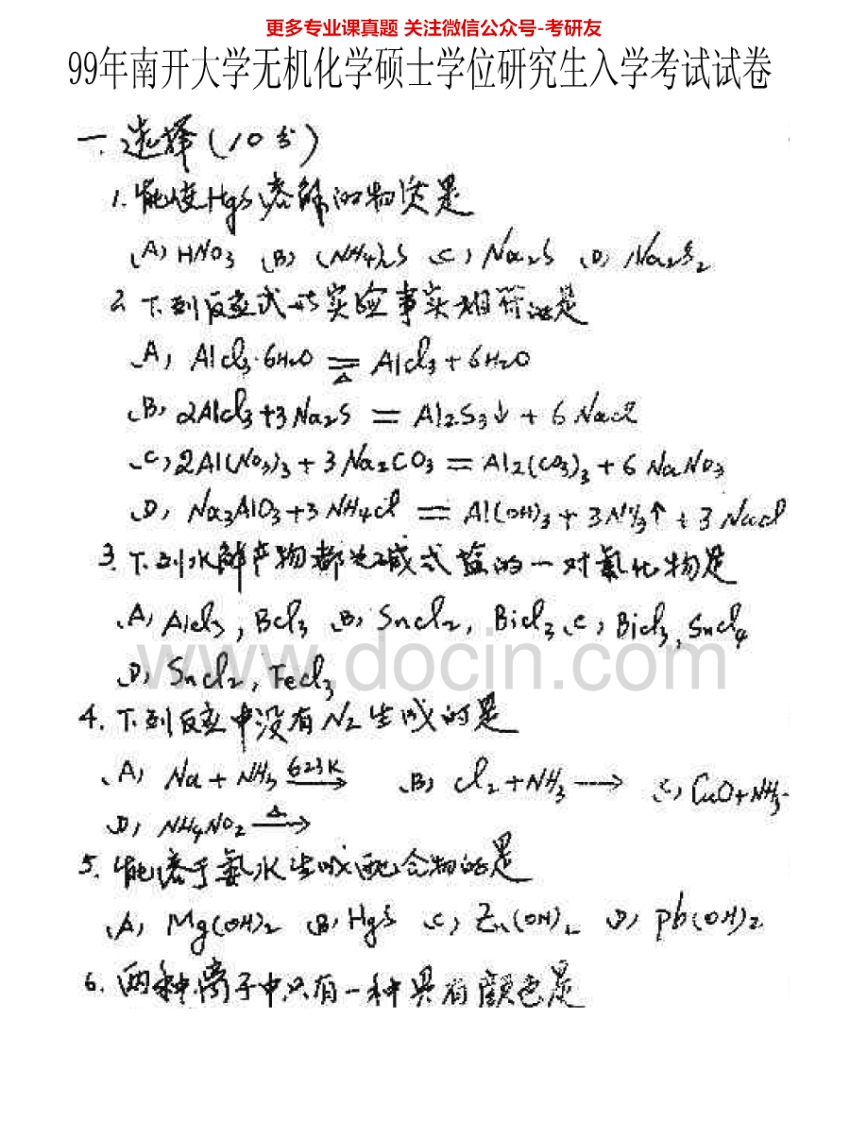 更多专业课真题 关注微信公众号-考研友
99年南开大学无机化学硕士学位研究生入学考试试卷
一、选择(10分)
1. 能使HgS溶解的物质是
(A) HNO3 (B) (NH4)2S (C) Na2S (D) Na2S2
2. 下列反应式与实验事实相符的是
(A) AlCl3·6H2O =△= AlCl3 + 6H2O
(B) 2AlCl3 + 3Na2S = Al2S3↓ + 6NaCl
(C) 2Al(NO3)3 + 3Na2CO3 = Al2(CO3)3 + 6NaNO3
(D) Na3AlO3 + 3NH4Cl = Al(OH)3 + 3NH3↑ + 3NaCl
3. 下列水解产物都是碱式盐的一对氯化物是
(A) AlCl3, BCl3 (B) SnCl2, BiCl3 (C) BiCl3, SnCl4
(D) SnCl2, FeCl3
www.docin.com
4. 下列反应中没有N2生成的是
(A) Na + NH3 —623K→ (B) Cl2 + NH3 → (C) CuO + NH3
(D) NH4NO2 —△→
5. 能溶于氨水生成配合物的是
(A) Mg(OH)2 (B) HgS (C) Zn(OH)2 (D) Pb(OH)2
6. 两种离子中只有一种具有颜色是